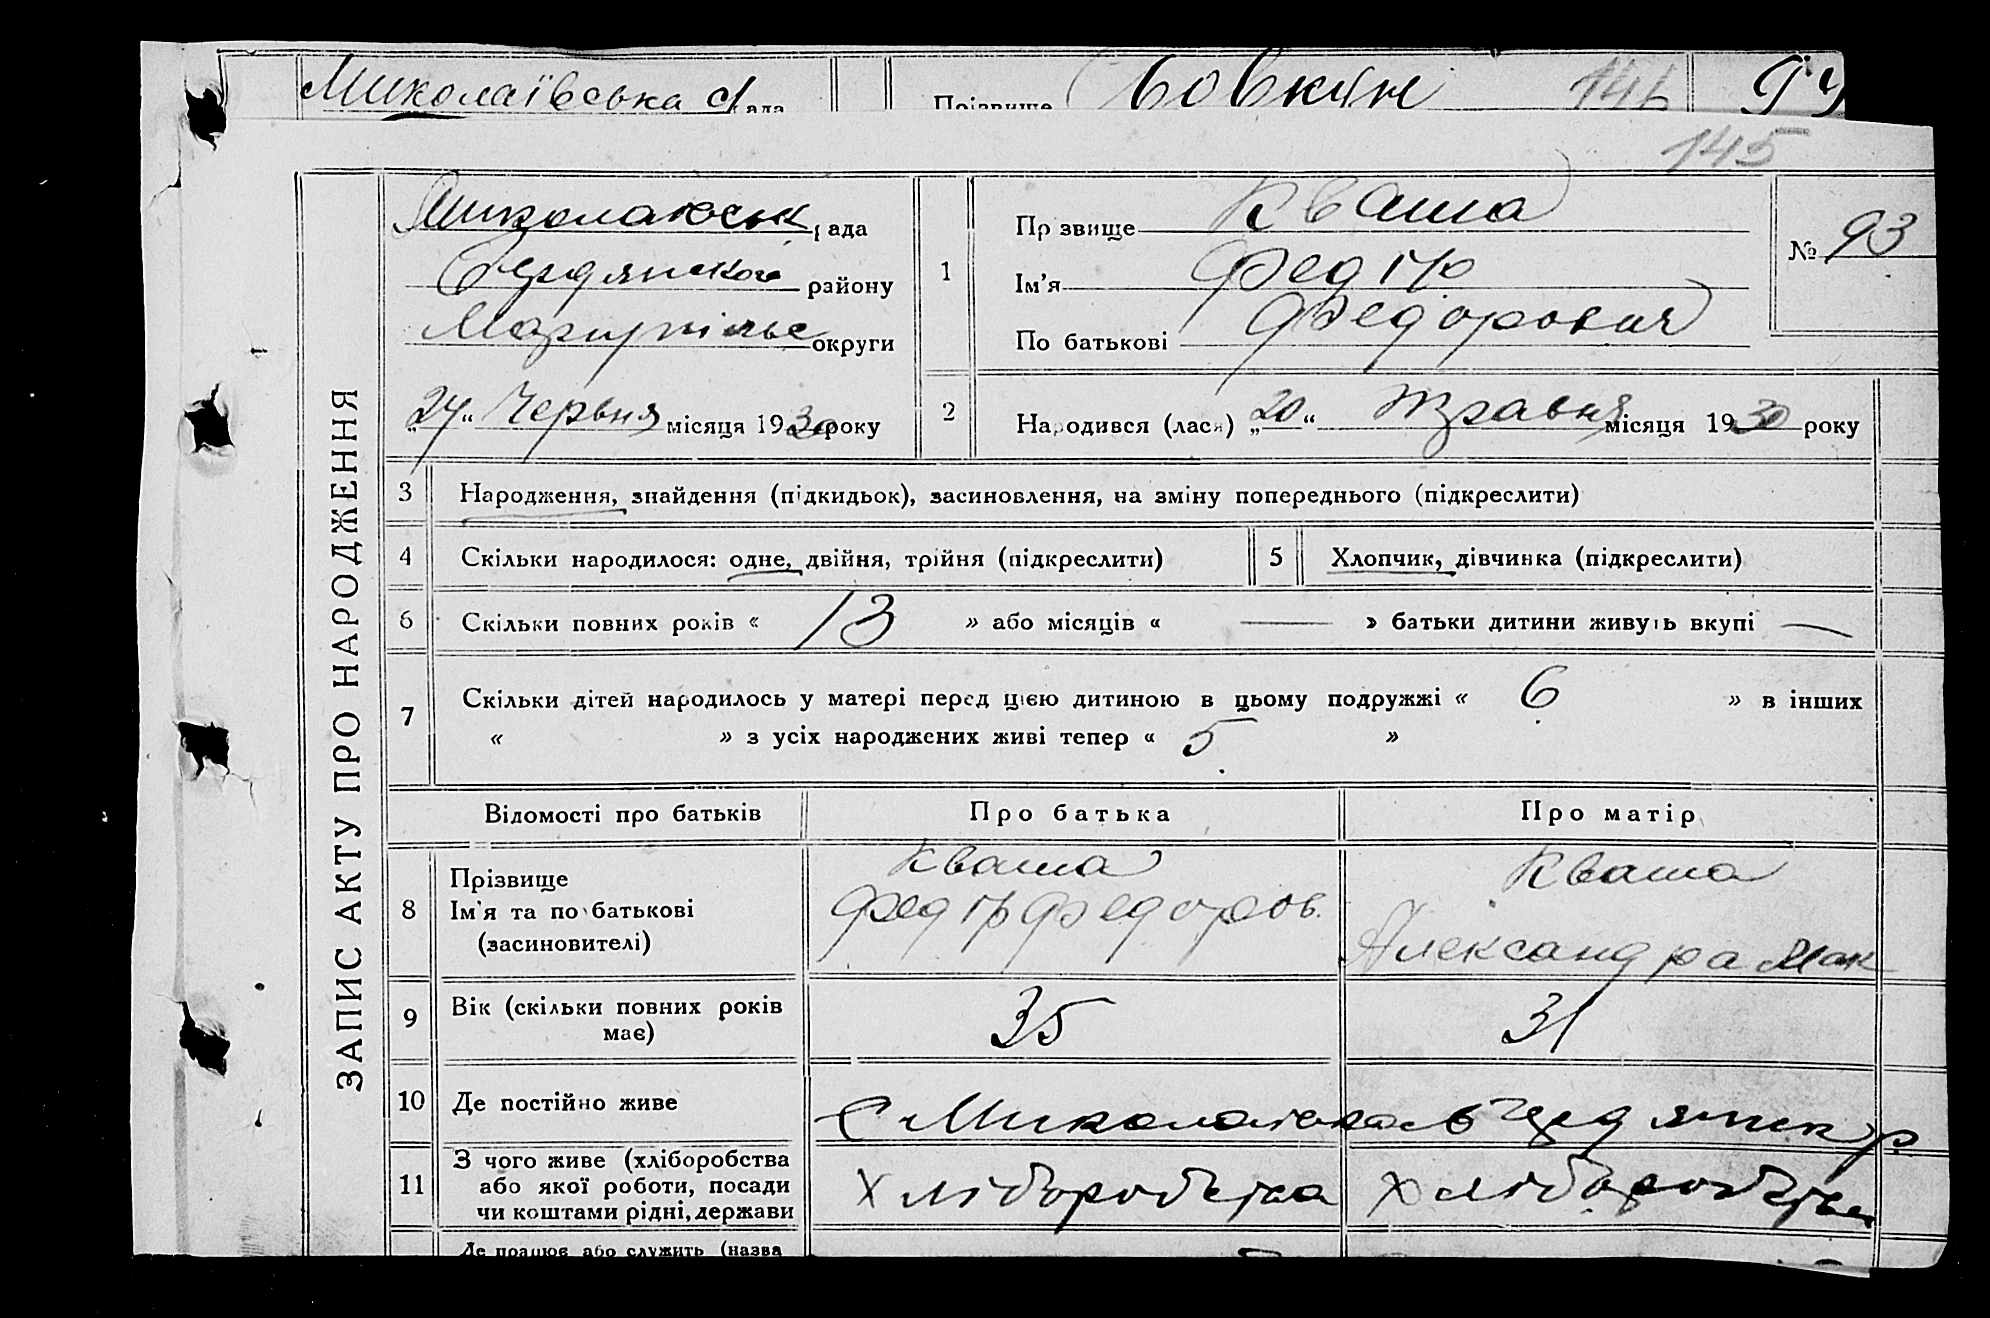 Миколаївська рада Прізвище Вовкун 146 94
145
ЗАПИС АКТУ ПРО НАРОДЖЕННЯ
Миколаївськ рада
Бердянського району
Маріупільс округи
„24“ Червня місяця 1930 року
1 Прізвище Кваша
Ім'я Федір
По батькові Федорович
№ 93
2 Народився (лася) „20“ Травня місяця 1930 року
3 Народження, знайдення (підкидьок), засиновлення, на зміну попереднього (підкреслити)
4 Скільки народилося: одне, двійня, трійня (підкреслити)
5 Хлопчик, дівчинка (підкреслити)
6 Скільки повних років « 13 » або місяців « — » батьки дитини живуть вкупі —
7 Скільки дітей народилось у матері перед цією дитиною в цьому подружжі « 6 » в інших
« » з усіх народжених живі тепер « 5 »
Відомості про батьків Про батька Про матір
8 Прізвище
Ім'я та по батькові
(засиновителі)
Кваша
Федір Федоров.
Кваша
Александра Мак
9 Вік (скільки повних років
має)
35 31
10 Де постійно живе
С Миколаївка Бердянск р.
11 З чого живе (хліборобства
або якої роботи, посади
чи коштами рідні, держави
Хліборобства Хліборобства
Де працює або служить (назва